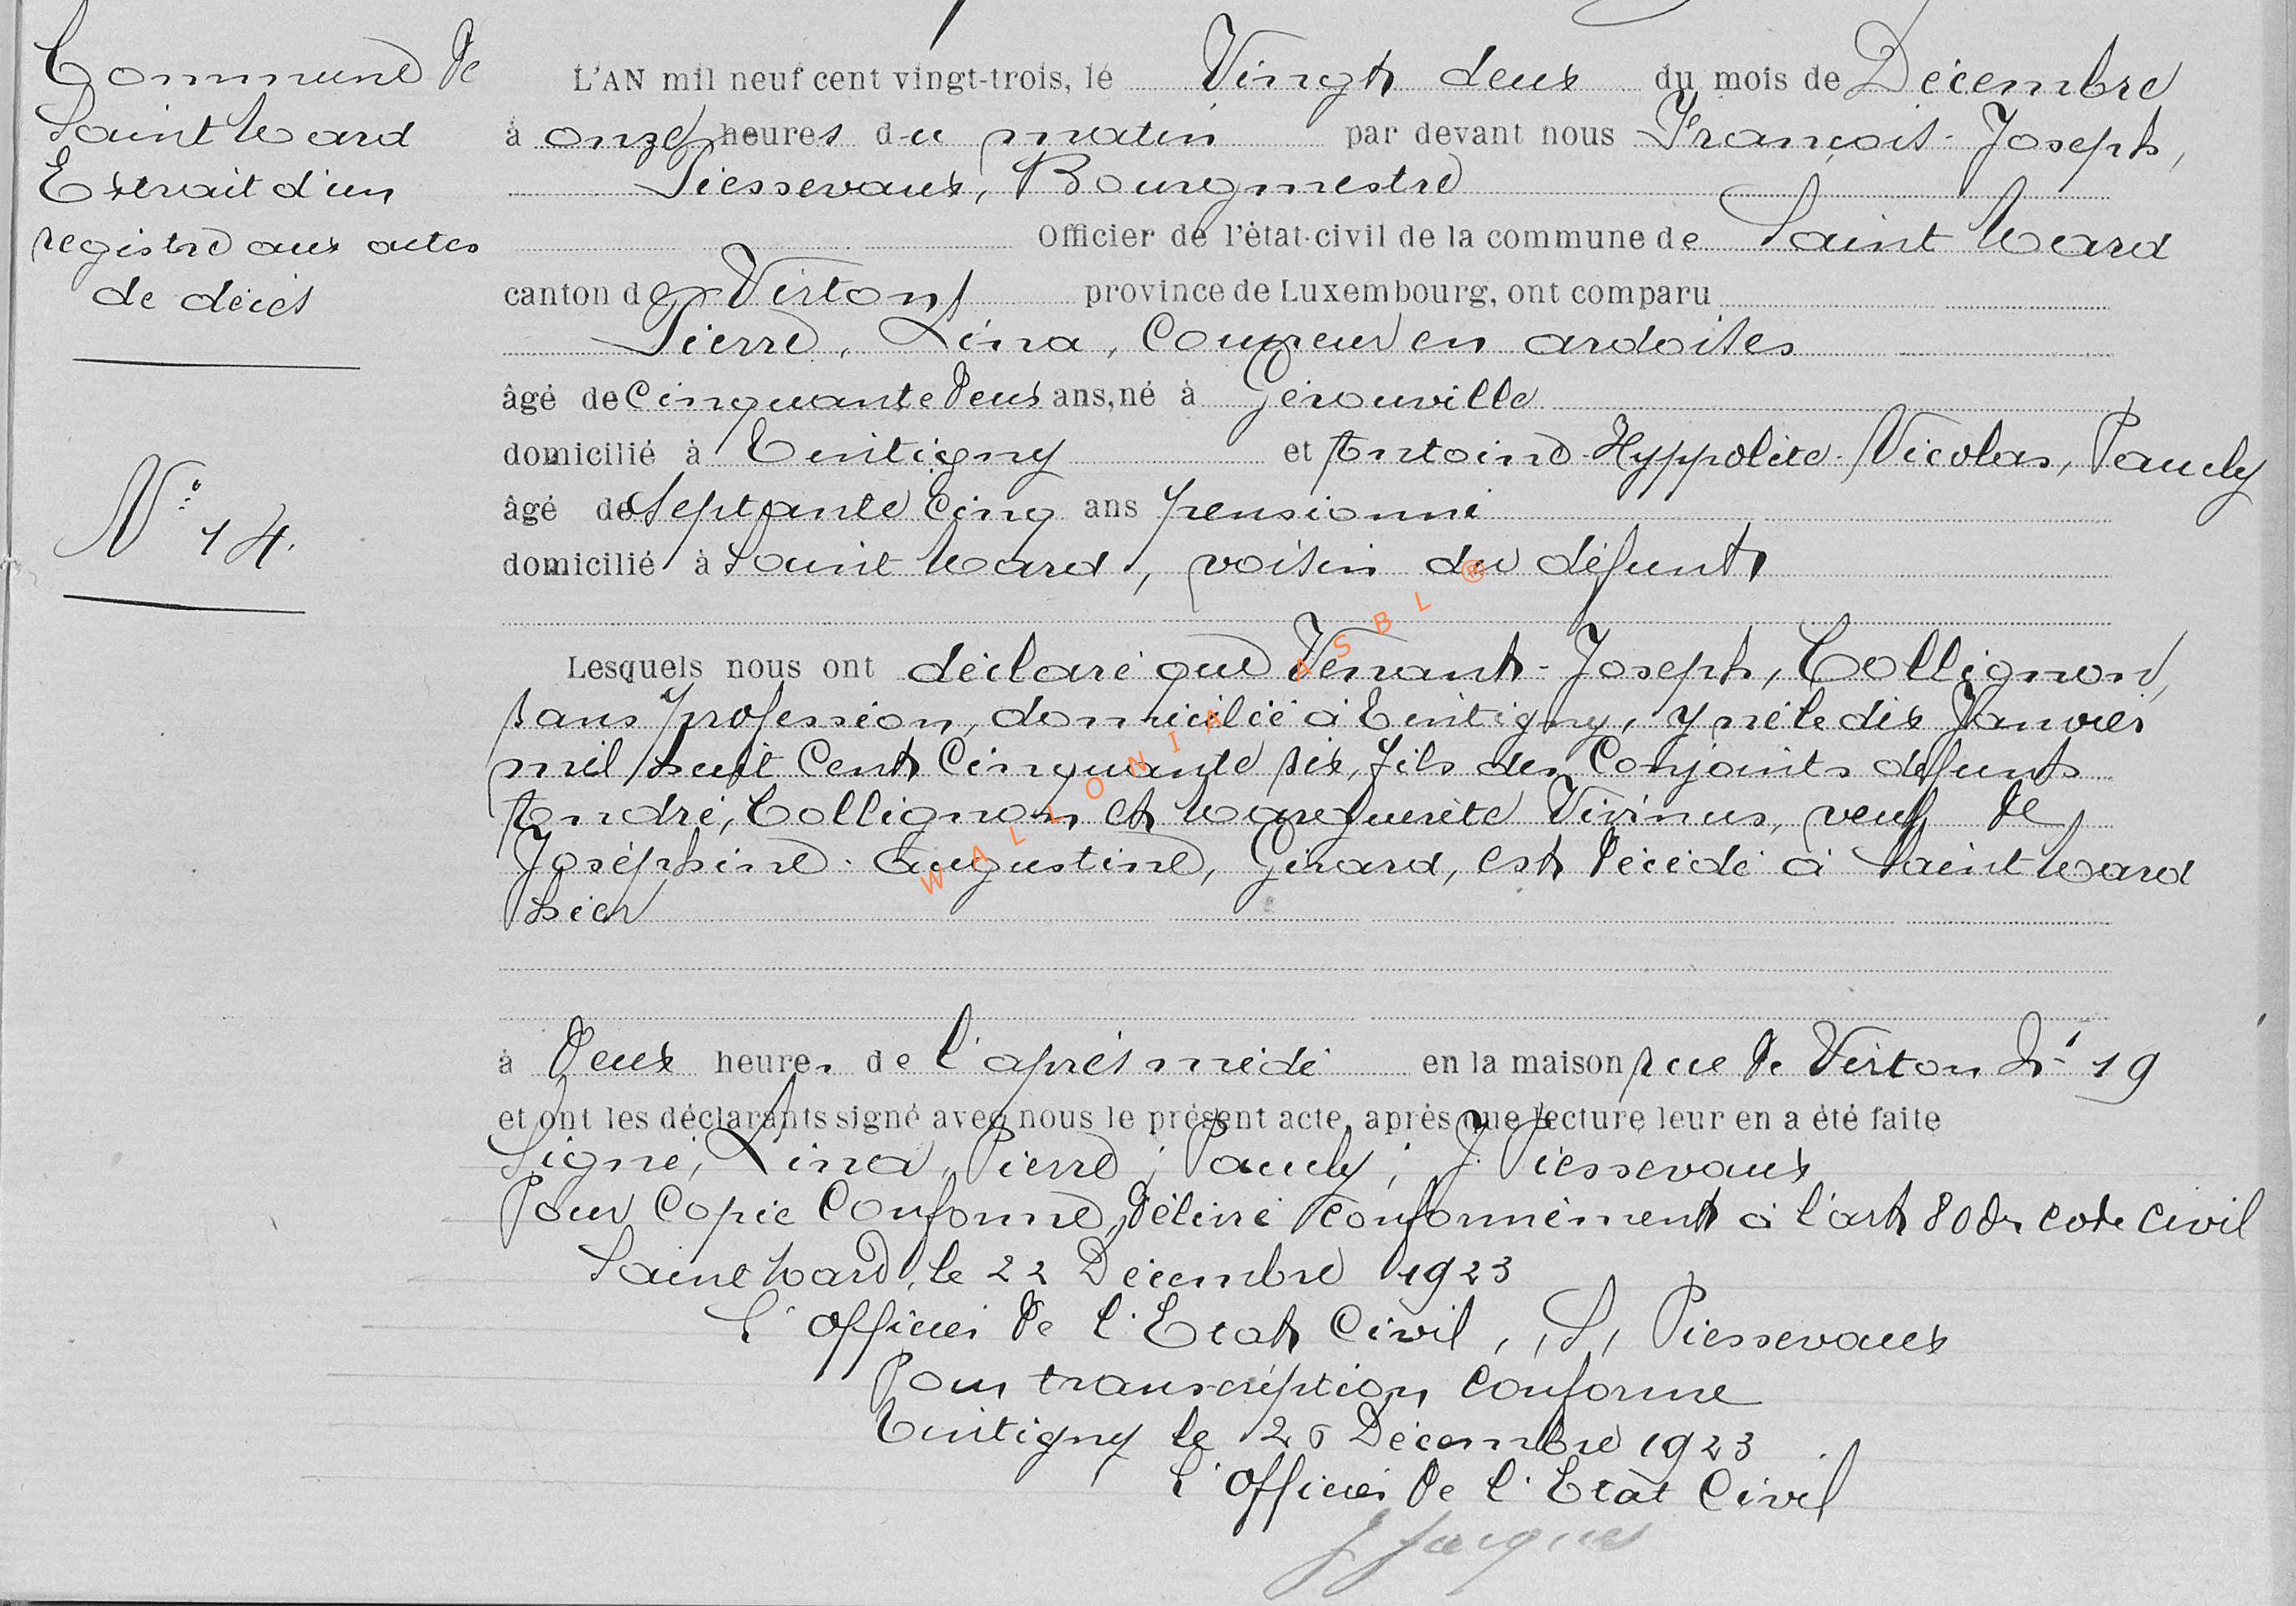 Commune de
Saint Mard
Extrait d'un
registre aux actes
de décès
N° 14.
L'AN mil neuf cent vingt-trois, le Vingt deux du mois de Décembre
à onze heures du matin par devant nous François-Joseph,
Piessevaux, Bourgmestre
Officier de l'état-civil de la commune de Saint Mard
canton de Virton province de Luxembourg, ont comparu
Pierre, Lina, Coupeur en ardoises
âgé de Cinquante deux ans, né à Gérouville
domicilié à Tintigny et Antoine-Hyppolite-Nicolas, Pauly
âgé de Septante Cinq ans pensionné
domicilié à Saint Mard, voisin du défunt
Lesquels nous ont déclaré que Venant-Joseph, Collignon,
sans profession, domicilié à Tintigny, y né le dix Janvier
mil huit Cent Cinquante six, fils des Conjoints défunts
André, Collignon et Marguerite Virinus, veuf de
Joséphine-Augustine, Girard, est décédé à Saint Mard
hier
à deux heures de l'après midi en la maison rue de Virton N° 19
et ont les déclarants signé avec nous le présent acte, après que lecture leur en a été faite
Signé, Lina, Pierre; Pauly; J. Piessevaux
Pour Copie Conforme, délivré conformément à l'art 80 du code civil
Saint Mard, le 22 Décembre 1923
L'officier de l'Etat Civil, (S) Piessevaux
Pour transcription Conforme
Tintigny le 26 Décembre 1923
L'officier de l'Etat Civil
J Jacques
WALLONIA ASBL ®